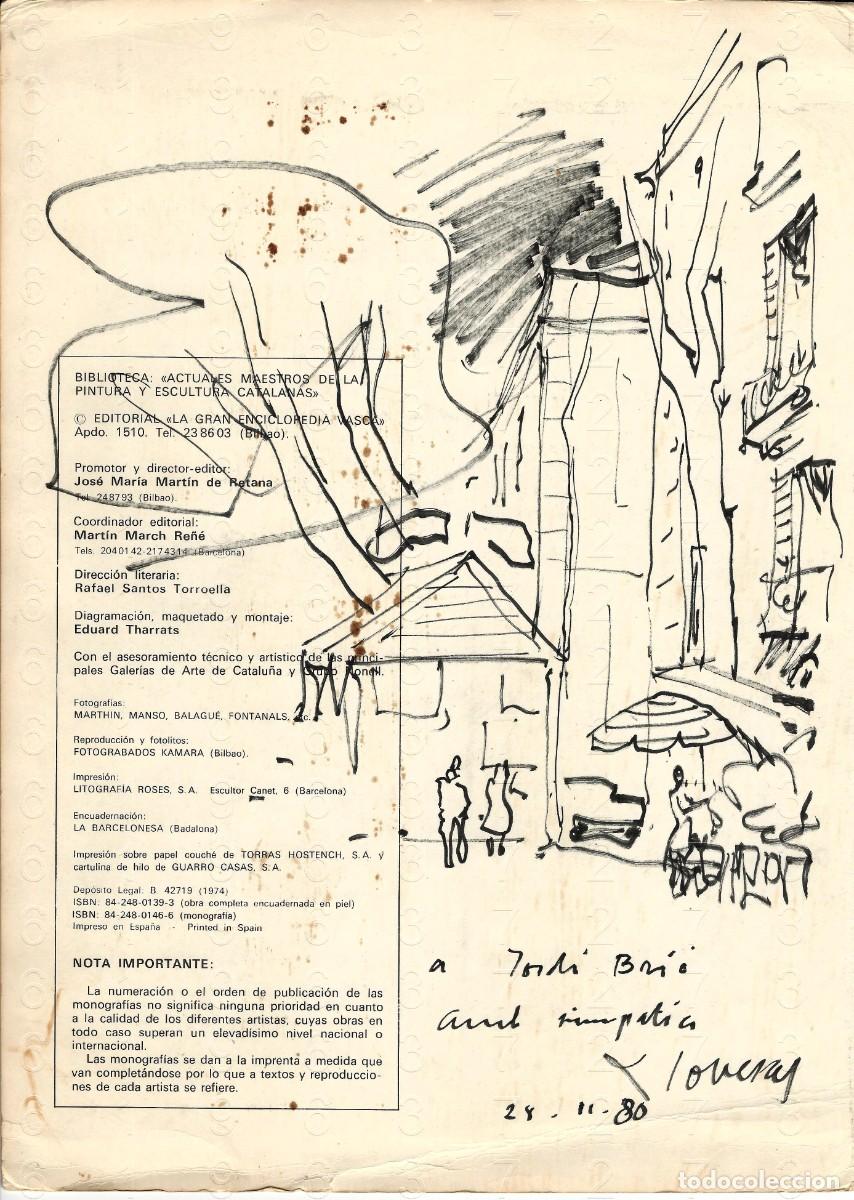 BIBLIOTECA: «ACTUALES MAESTROS DE LA
PINTURA Y ESCULTURA CATALANAS»
© EDITORIAL «LA GRAN ENCICLOPEDIA VASCA»
Apdo. 1510. Tel. 23 86 03 (Bilbao).
Promotor y director-editor:
José María Martín de Retana
Tel. 248793 (Bilbao).
Coordinador editorial:
Martín March Reñé
Tels. 2040142-2174314 (Barcelona)
Dirección literaria:
Rafael Santos Torroella
Diagramación, maquetado y montaje:
Eduard Tharrats
Con el asesoramiento técnico y artístico de las princi-
pales Galerías de Arte de Cataluña y Grupo Nonell.
Fotografías:
MARTHIN, MANSO, BALAGUÉ, FONTANALS, etc.
Reproducción y fotolitos:
FOTOGRABADOS KAMARA (Bilbao).
Impresión:
LITOGRAFÍA ROSES, S.A. Escultor Canet, 6 (Barcelona)
Encuadernación:
LA BARCELONESA (Badalona)
Impresión sobre papel couché de TORRAS HOSTENCH, S.A. y
cartulina de hilo de GUARRO CASAS, S.A.
Depósito Legal: B. 42719 (1974)
ISBN: 84-248-0139-3 (obra completa encuadernada en piel)
ISBN: 84-248-0146-6 (monografía)
Impreso en España - Printed in Spain
NOTA IMPORTANTE:
La numeración o el orden de publicación de las
monografías no significa ninguna prioridad en cuanto
a la calidad de los diferentes artistas, cuyas obras en
todo caso superan un elevadísimo nivel nacional o
internacional.
Las monografías se dan a la imprenta a medida que
van completándose por lo que a textos y reproduccio-
nes de cada artista se refiere.
a Jordi
amb simpatia
Lloveras
28 - 11 - 80
todocoleccion